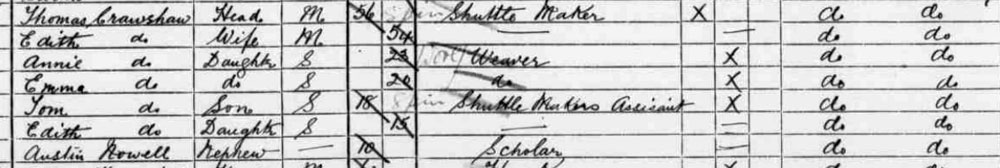 Thomas Crawshaw Head M 56 Spin Shuttle Maker X do do
Edith do Wife M 54 — — do do
Annie do Daughtr S 23 Weaver X do do
Emma do do S 20 do X do do
Tom do Son S 18 Spin Shuttle Makers Assisant X do do
Edith do Daughtr S 15 — — do do
Austin Nowell Nephew — 10 Scholar — do do